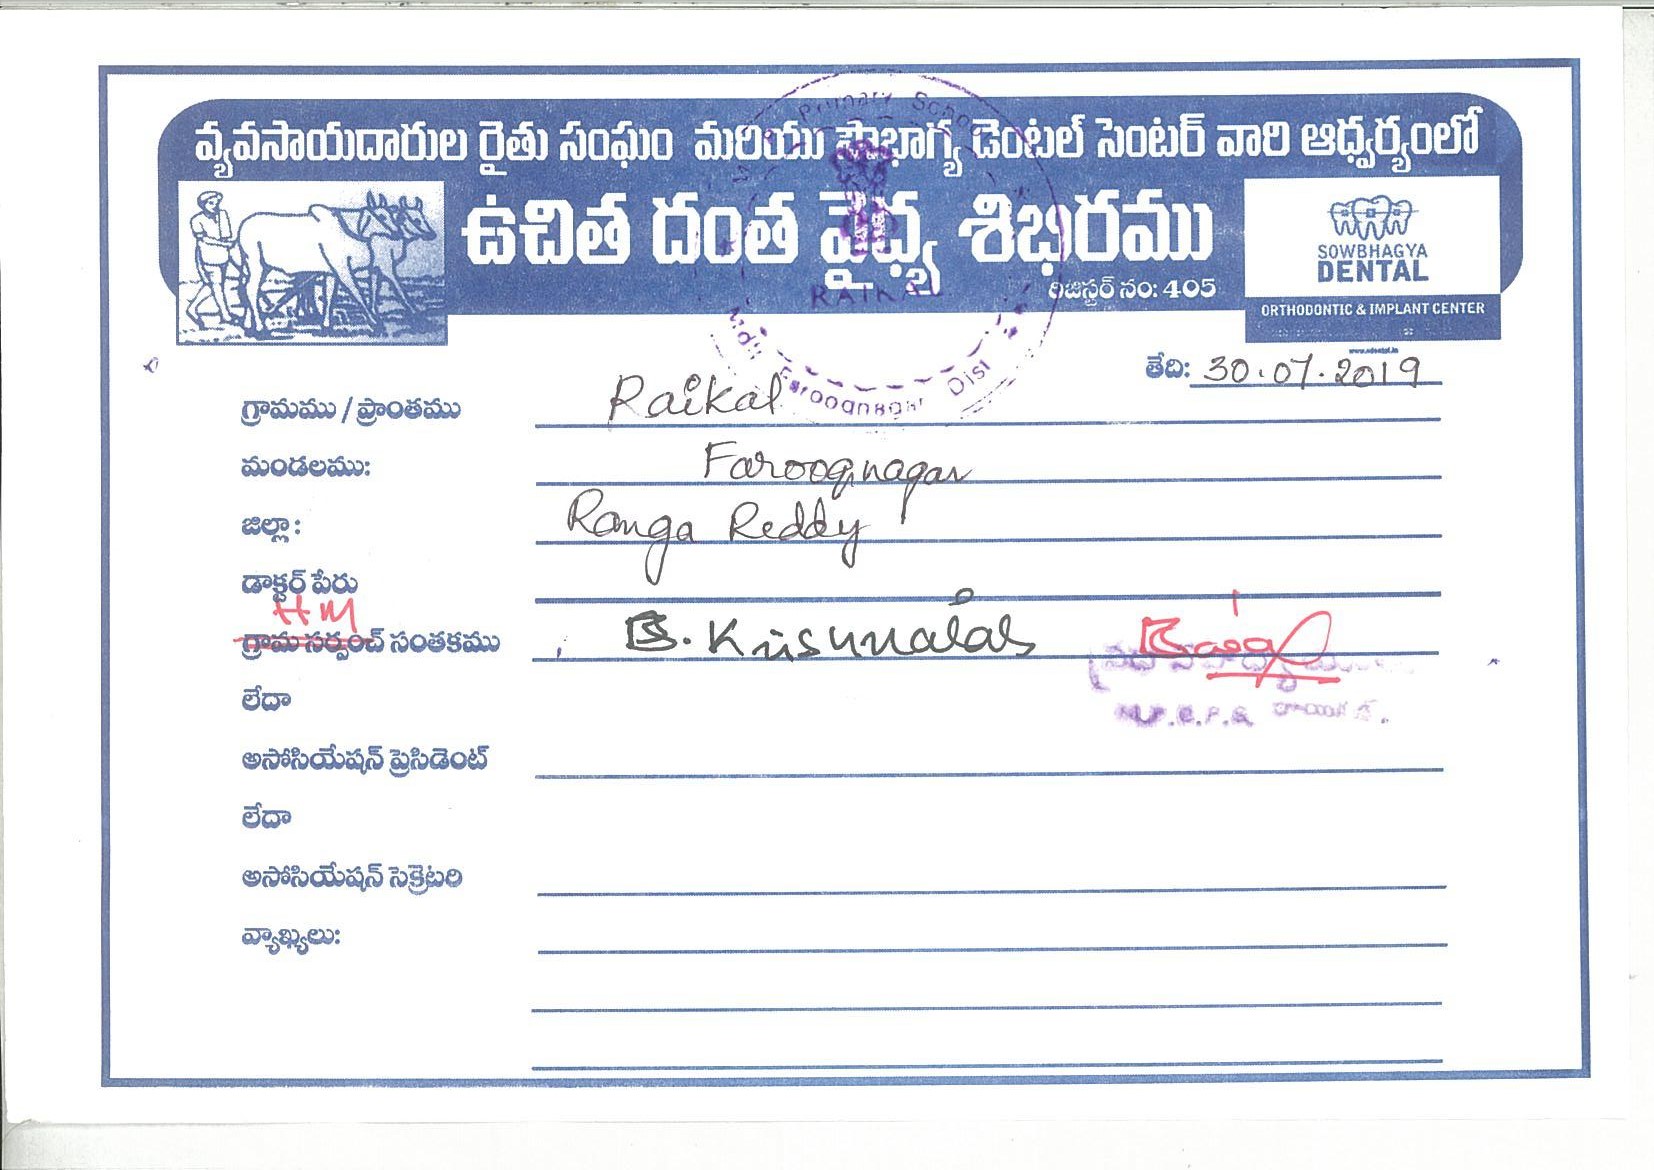 వ్యవసాయదారుల రైతు సంఘం మరియు సౌభాగ్య డెంటల్ సెంటర్ వారి ఆధ్వర్యంలో
ఉచిత దంత వైధ్య శిభిరము
రిజిస్టర్ నం: 405
SOWBHAGYA
DENTAL
ORTHODONTIC & IMPLANT CENTER
Primary School
RAIKAL
Mdl Farooqnagar Dist
తేది: 30.07.2019
గ్రామము / ప్రాంతము Raikal
మండలము: Farooqnagar
జిల్లా: Ranga Reddy
డాక్టర్ పేరు
HM
గ్రామ సర్పంచ్ సంతకము B. Krishnalal
లేదా
అసోసియేషన్ ప్రెసిడెంట్
లేదా
అసోసియేషన్ సెక్రెటరి
వ్యాఖ్యలు: